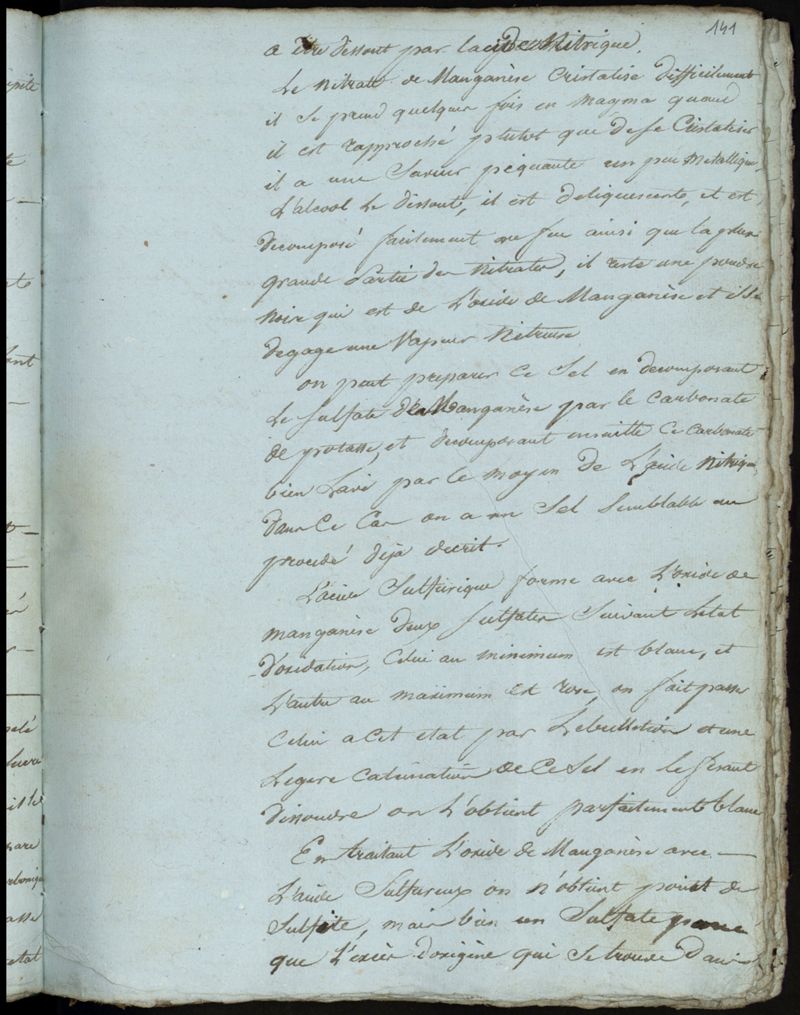 141
a été dissout par lacide Nitrique.
Le nitrate de Manganèse Cristalise difficilement
il se prend quelques fois en magma quand
il est rapproché plutot que de se Cristaliser
il a une Saveur piquante un peu Metallique,
L'alcool Le dissout, il est deliquescente, et est
decomposé facilement au feu ainsi que la plus
grande Partie des Nitrates, il reste une poudre
noire qui est de L'oxide de Manganèse et il se
degage une Vapeur Nitreuse
on peut preparer Ce Sel en decomposant
Le Sulfate de Manganèse par le Carbonate
de potasse, et decomposant ensuitte Ce Carbonate
bien Lavé par le moyen de L'acide Nitrique
dans Ce Cas on a un Sel Semblable au
procédé deja décrit.
L'acide Sulfurique forme avec L'oxide de
manganèse deux Sulfates Suivant Letat
d'oxidation, Celui au minimum est blanc, et
L'autre au maximum est rose, on fait passer
Celui a Cet etat par Lebullition et une
Legere Calcination de Ce Sel en le fesant
dissoudre on L'obtient parfaitement blanc
En traitant L'oxide de Manganèse avec —
L'acide Sulfureux on n'obtient point de
Sulfite, mais bien un Sulfate parce
que L'excès d'oxigène qui Se trouve dans